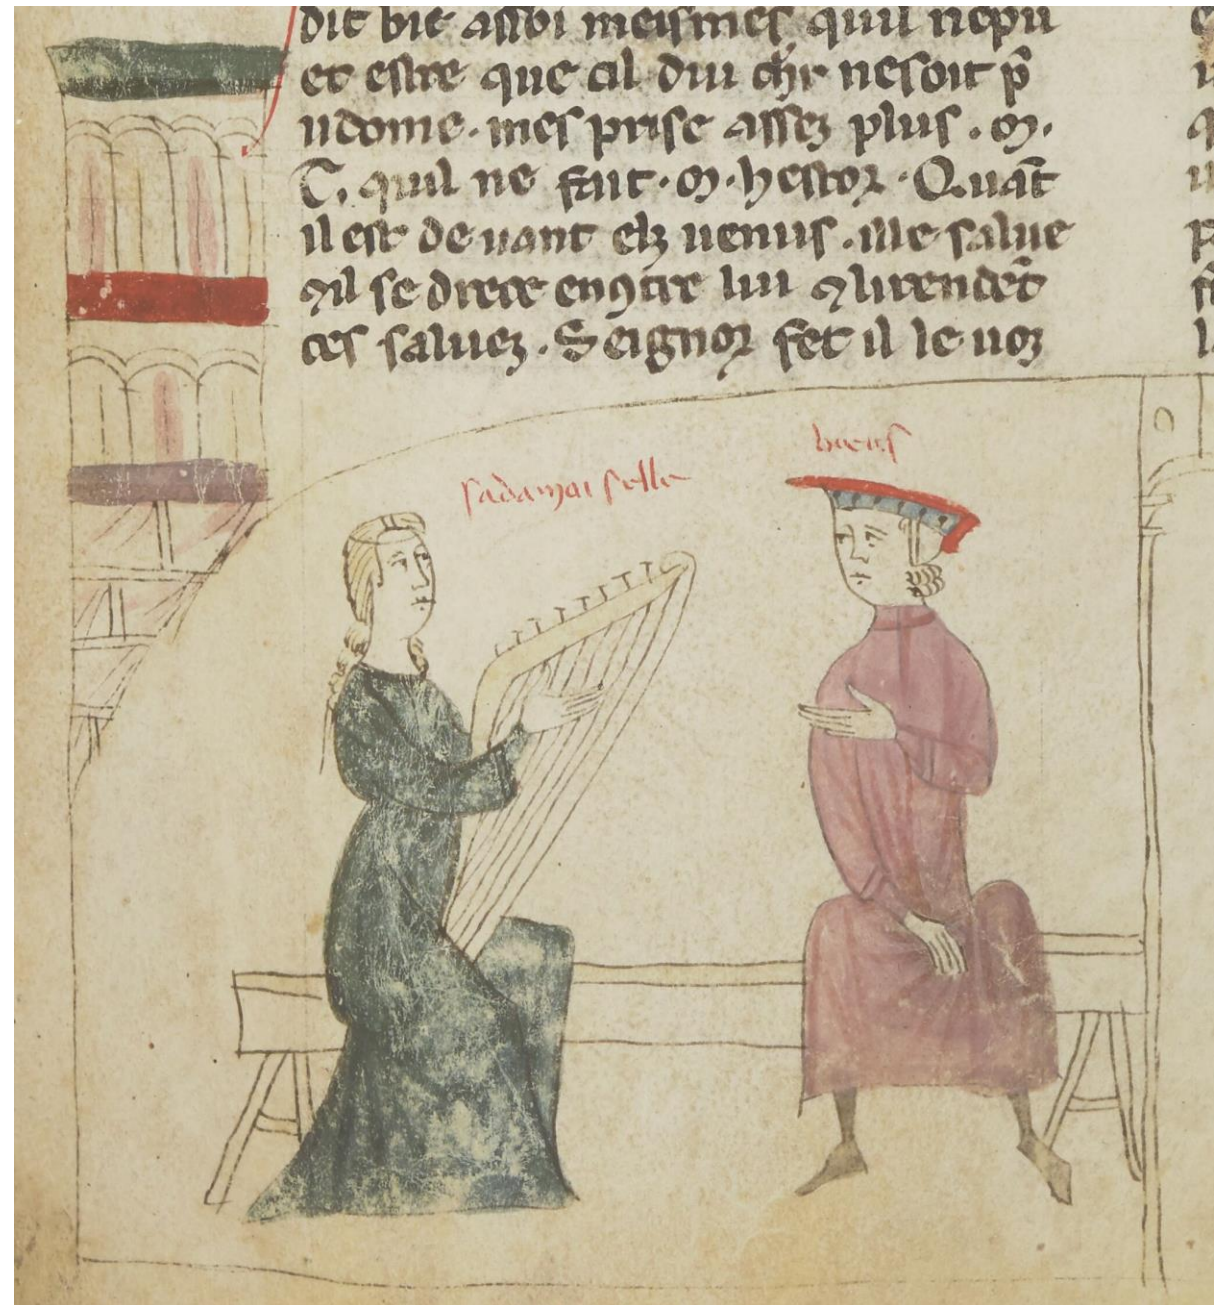 dit bie assoi meismes quil nepu
et estre que cil diu chr nesoit p̃
udome · mes prise assez plus · m ·
T , quil ne fait · m · hestor · Quãt
il est de uant elz uenus · ille salue
⁊il se drece enꝯtre lui ⁊lirent
ces saluez · Seignor fet il le uoz
sadamaiselle